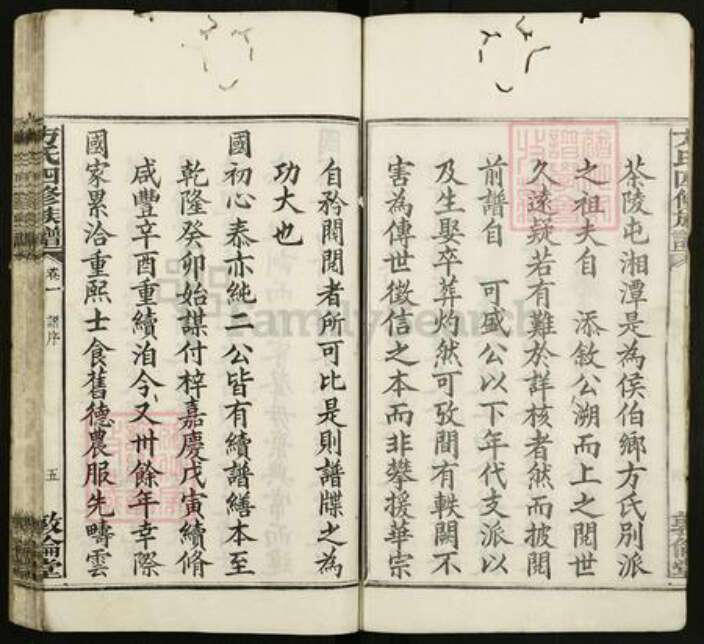 方氏四修族譜
敦倫堂
茶陵屯湘潭是為侯伯鄉方氏別派
之祖夫自 添敘公溯而上之閱世
久遠疑若有難於詳核者然而披閱
前譜自 可盛公以下年代支派以
及生娶卒葬灼然可攷間有軼闕不
害為傳世徵信之本而非攀援華宗
自矜閥閱者所可比是則譜牒之為
功大也
國初心泰亦純二公皆有續譜繕本至
乾隆癸卯始謀付梓嘉慶戊寅續脩
咸豐辛酉重續洎今又卅餘年幸際
國家累洽重熙士食舊德農服先疇雲
方氏四修族譜
卷一
譜序
五
敦倫堂
FamilySearch